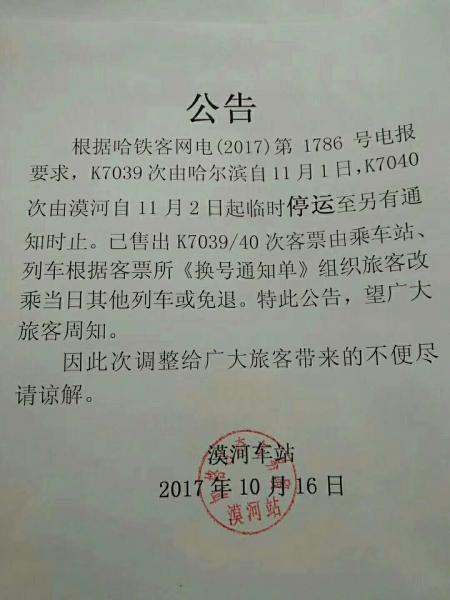 公告
根据哈铁客网电(2017)第 1786 号电报
要求，K7039 次由哈尔滨自 11 月 1 日，K7040
次由漠河自 11 月 2 日起临时停运至另有通
知时止。已售出 K7039/40 次客票由乘车站、
列车根据客票所《换号通知单》组织旅客改
乘当日其他列车或免退。特此公告，望广大
旅客周知。
因此次调整给广大旅客带来的不便尽
请谅解。
漠河车站
2017 年 10 月 16 日
漠河站